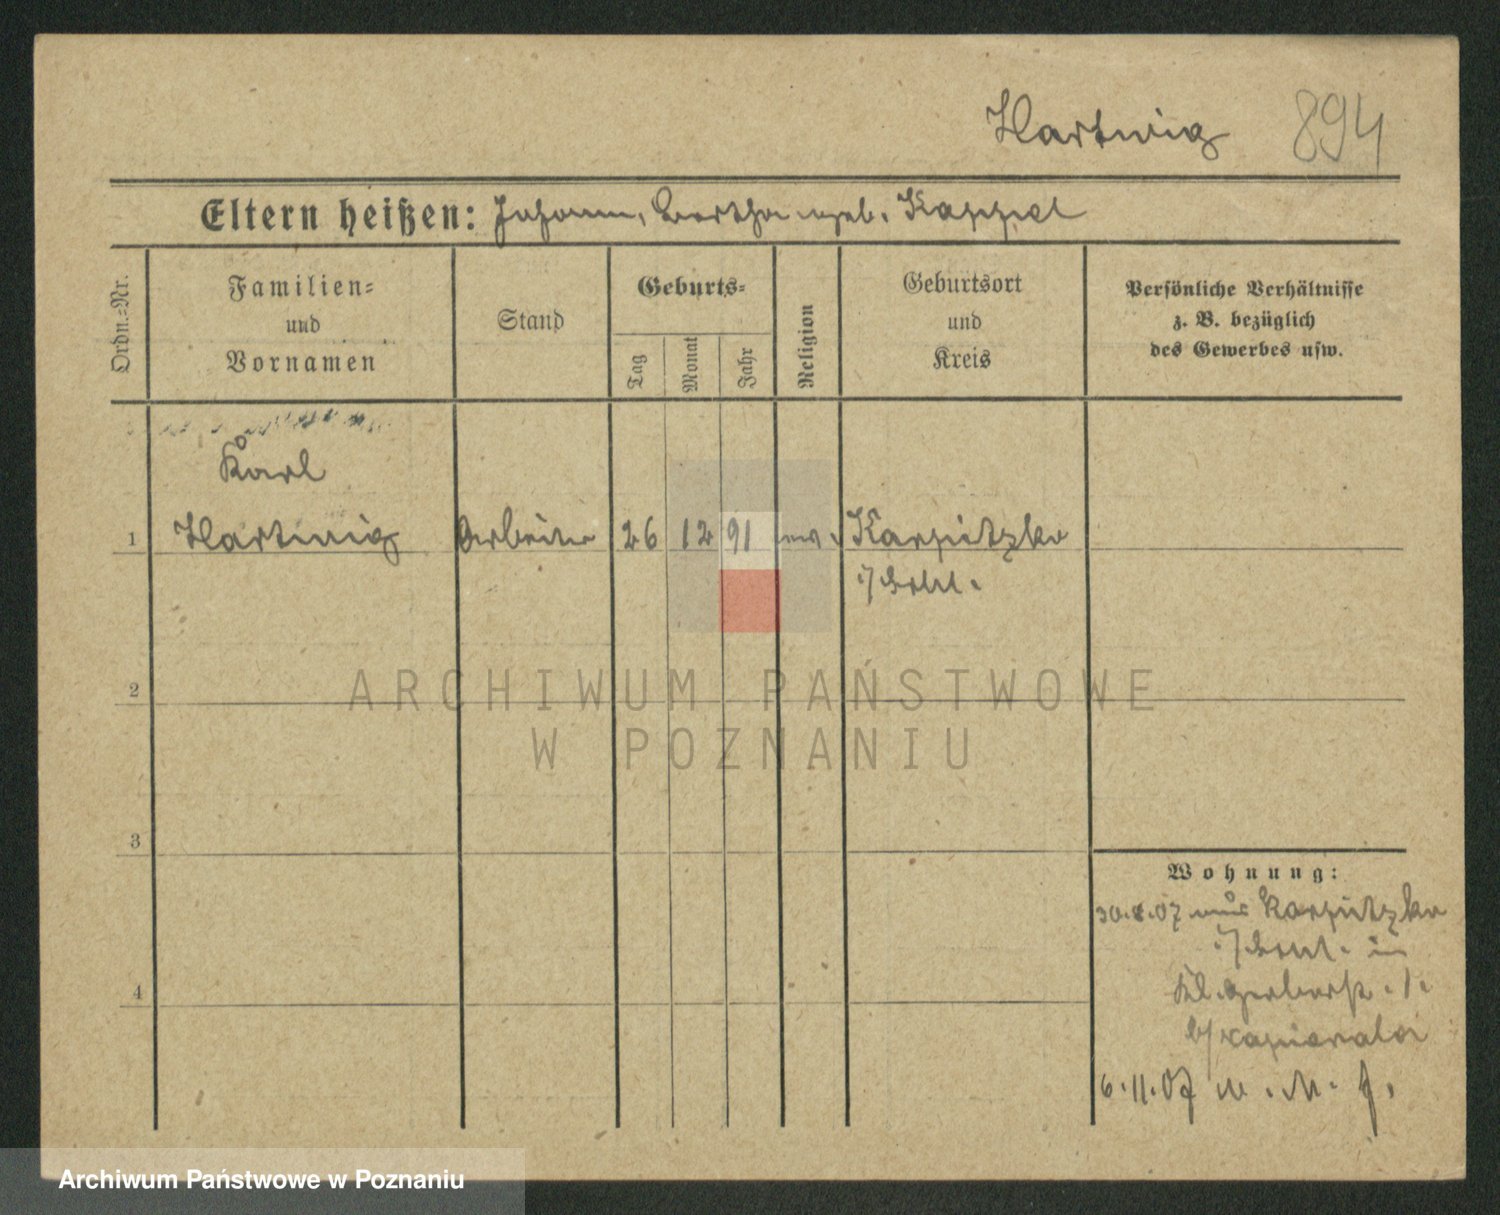 Hartwig 894
Eltern heißen: Johann, Bertha geb. Kappel
Ordn.-Nr.
Familien-
und
Vornamen
Stand
Geburts-
Tag
Monat
Jahr
Religion
Geburtsort
und
Kreis
Persönliche Verhältnisse
z. B. bezüglich
des Gewerbes usw.
Karl
1 Hartwig Arbeiter 26 12 91 ev. Karpitzko
2
3
4
Wohnung:
30.8.07 aus Karpitzko
in
Kl. Gerberstr. 1.
b/
6.11.07
ARCHIWUM PAŃSTWOWE
W POZNANIU
Archiwum Państwowe w Poznaniu